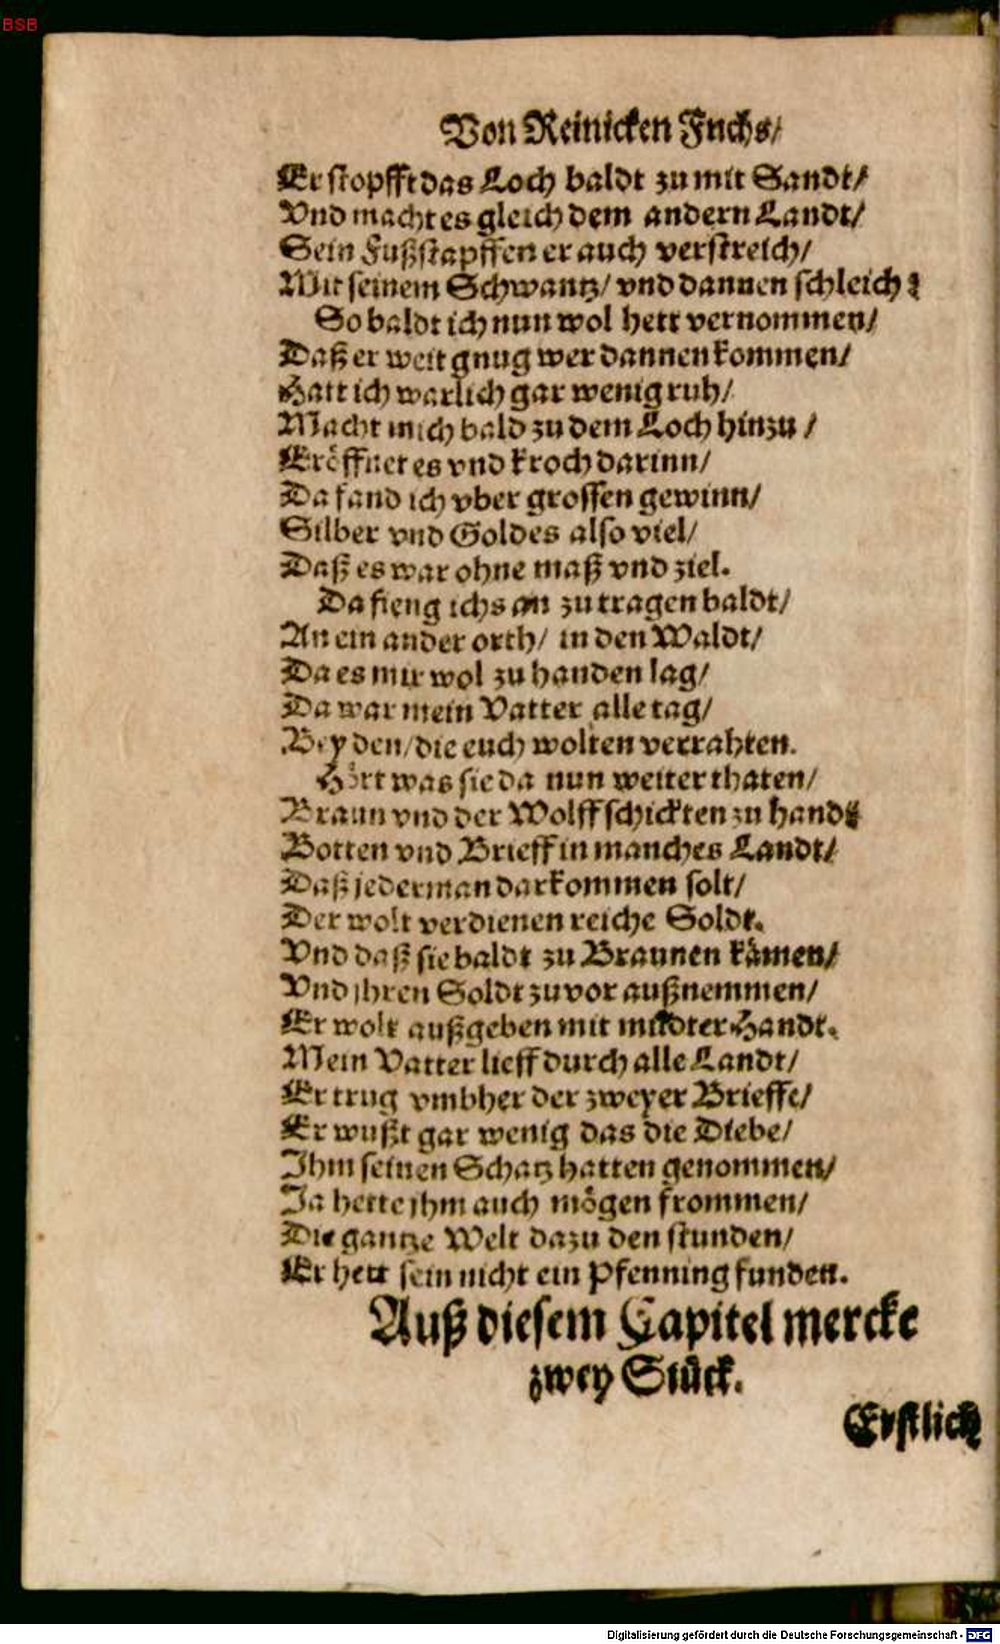 BSB
Von Reinicken Fuchs/
Er stopfft das Loch baldt zu mit Sandt/
Vnd macht es gleich dem andern Landt/
Sein Fußstapffen er auch verstreich/
Mit seinem Schwantz/ vnd dannen schleich:
So baldt ich nun wol hett vernommen/
Daß er weit gnug wer dannen kommen/
Hatt ich warlich gar wenig ruh/
Macht mich bald zu dem Loch hinzu/
Eröffnet es vnd kroch darinn/
Da fand ich vber grossen gewinn/
Silber vnd Goldes also viel/
Daß es war ohne maß vnd ziel.
Da fieng ichs an zu tragen baldt/
An ein ander orth/ in den Waldt/
Da es mir wol zu handen lag/
Da war mein Vatter alle tag/
Bey den/ die euch wolten verrahten.
Hört was sie da nun weiter thaten/
Braun vnd der Wolff schickten zu handt
Botten vnd Brieff in manches Landt/
Daß jederman dar kommen solt/
Der wolt verdienen reiche Soldt.
Vnd daß sie baldt zu Braunen kämen/
Vnd jhren Soldt zuvor außnemmen/
Er wolt außgeben mit mildter Handt.
Mein Vatter lieff durch alle Landt/
Er trug vmbher der zweyer Brieffe/
Er wußt gar wenig das die Diebe/
Ihm seinen Schatz hatten genommen/
Ja hette jhm auch mögen frommen/
Die gantze Welt dazu den stunden/
Er hett sein nicht ein Pfenning funden.
Auß diesem Capitel mercke
zwey Stück.
Erstlich
Digitalisierung gefördert durch die Deutsche Forschungsgemeinschaft - DFG